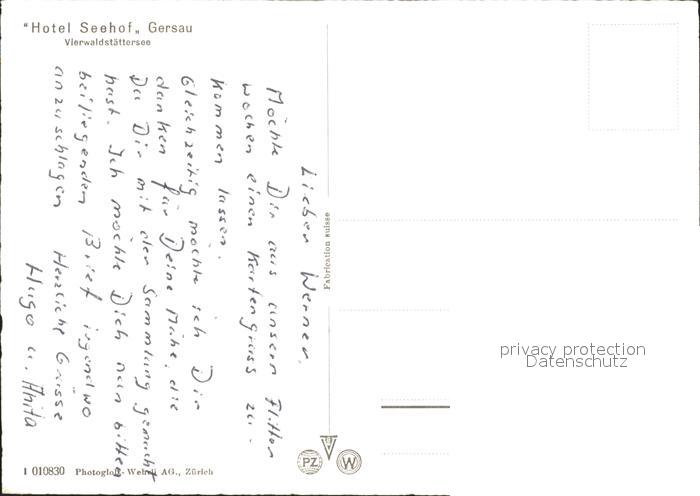 "Hotel Seehof„ Gersau
Vierwaldstättersee
Lieber Werner,
Möchte Dir aus unsern Flitter
wochen einen Kartengruss zu-
kommen lassen.
Gleichzeitig möchte ich Dir
danken für Deine Mühe, die
Du Dir mit der Sammlung gemacht
hast. Ich möchte Dich nun bitten
beiliegenden Brief irgendwo
anzuschlagen Herzliche Grüsse
Hugo u. Anita
Fabrication suisse
1 010830 Photoglob-Wehrli AG., Zürich
PZ
W
privacy protection
Datenschutz